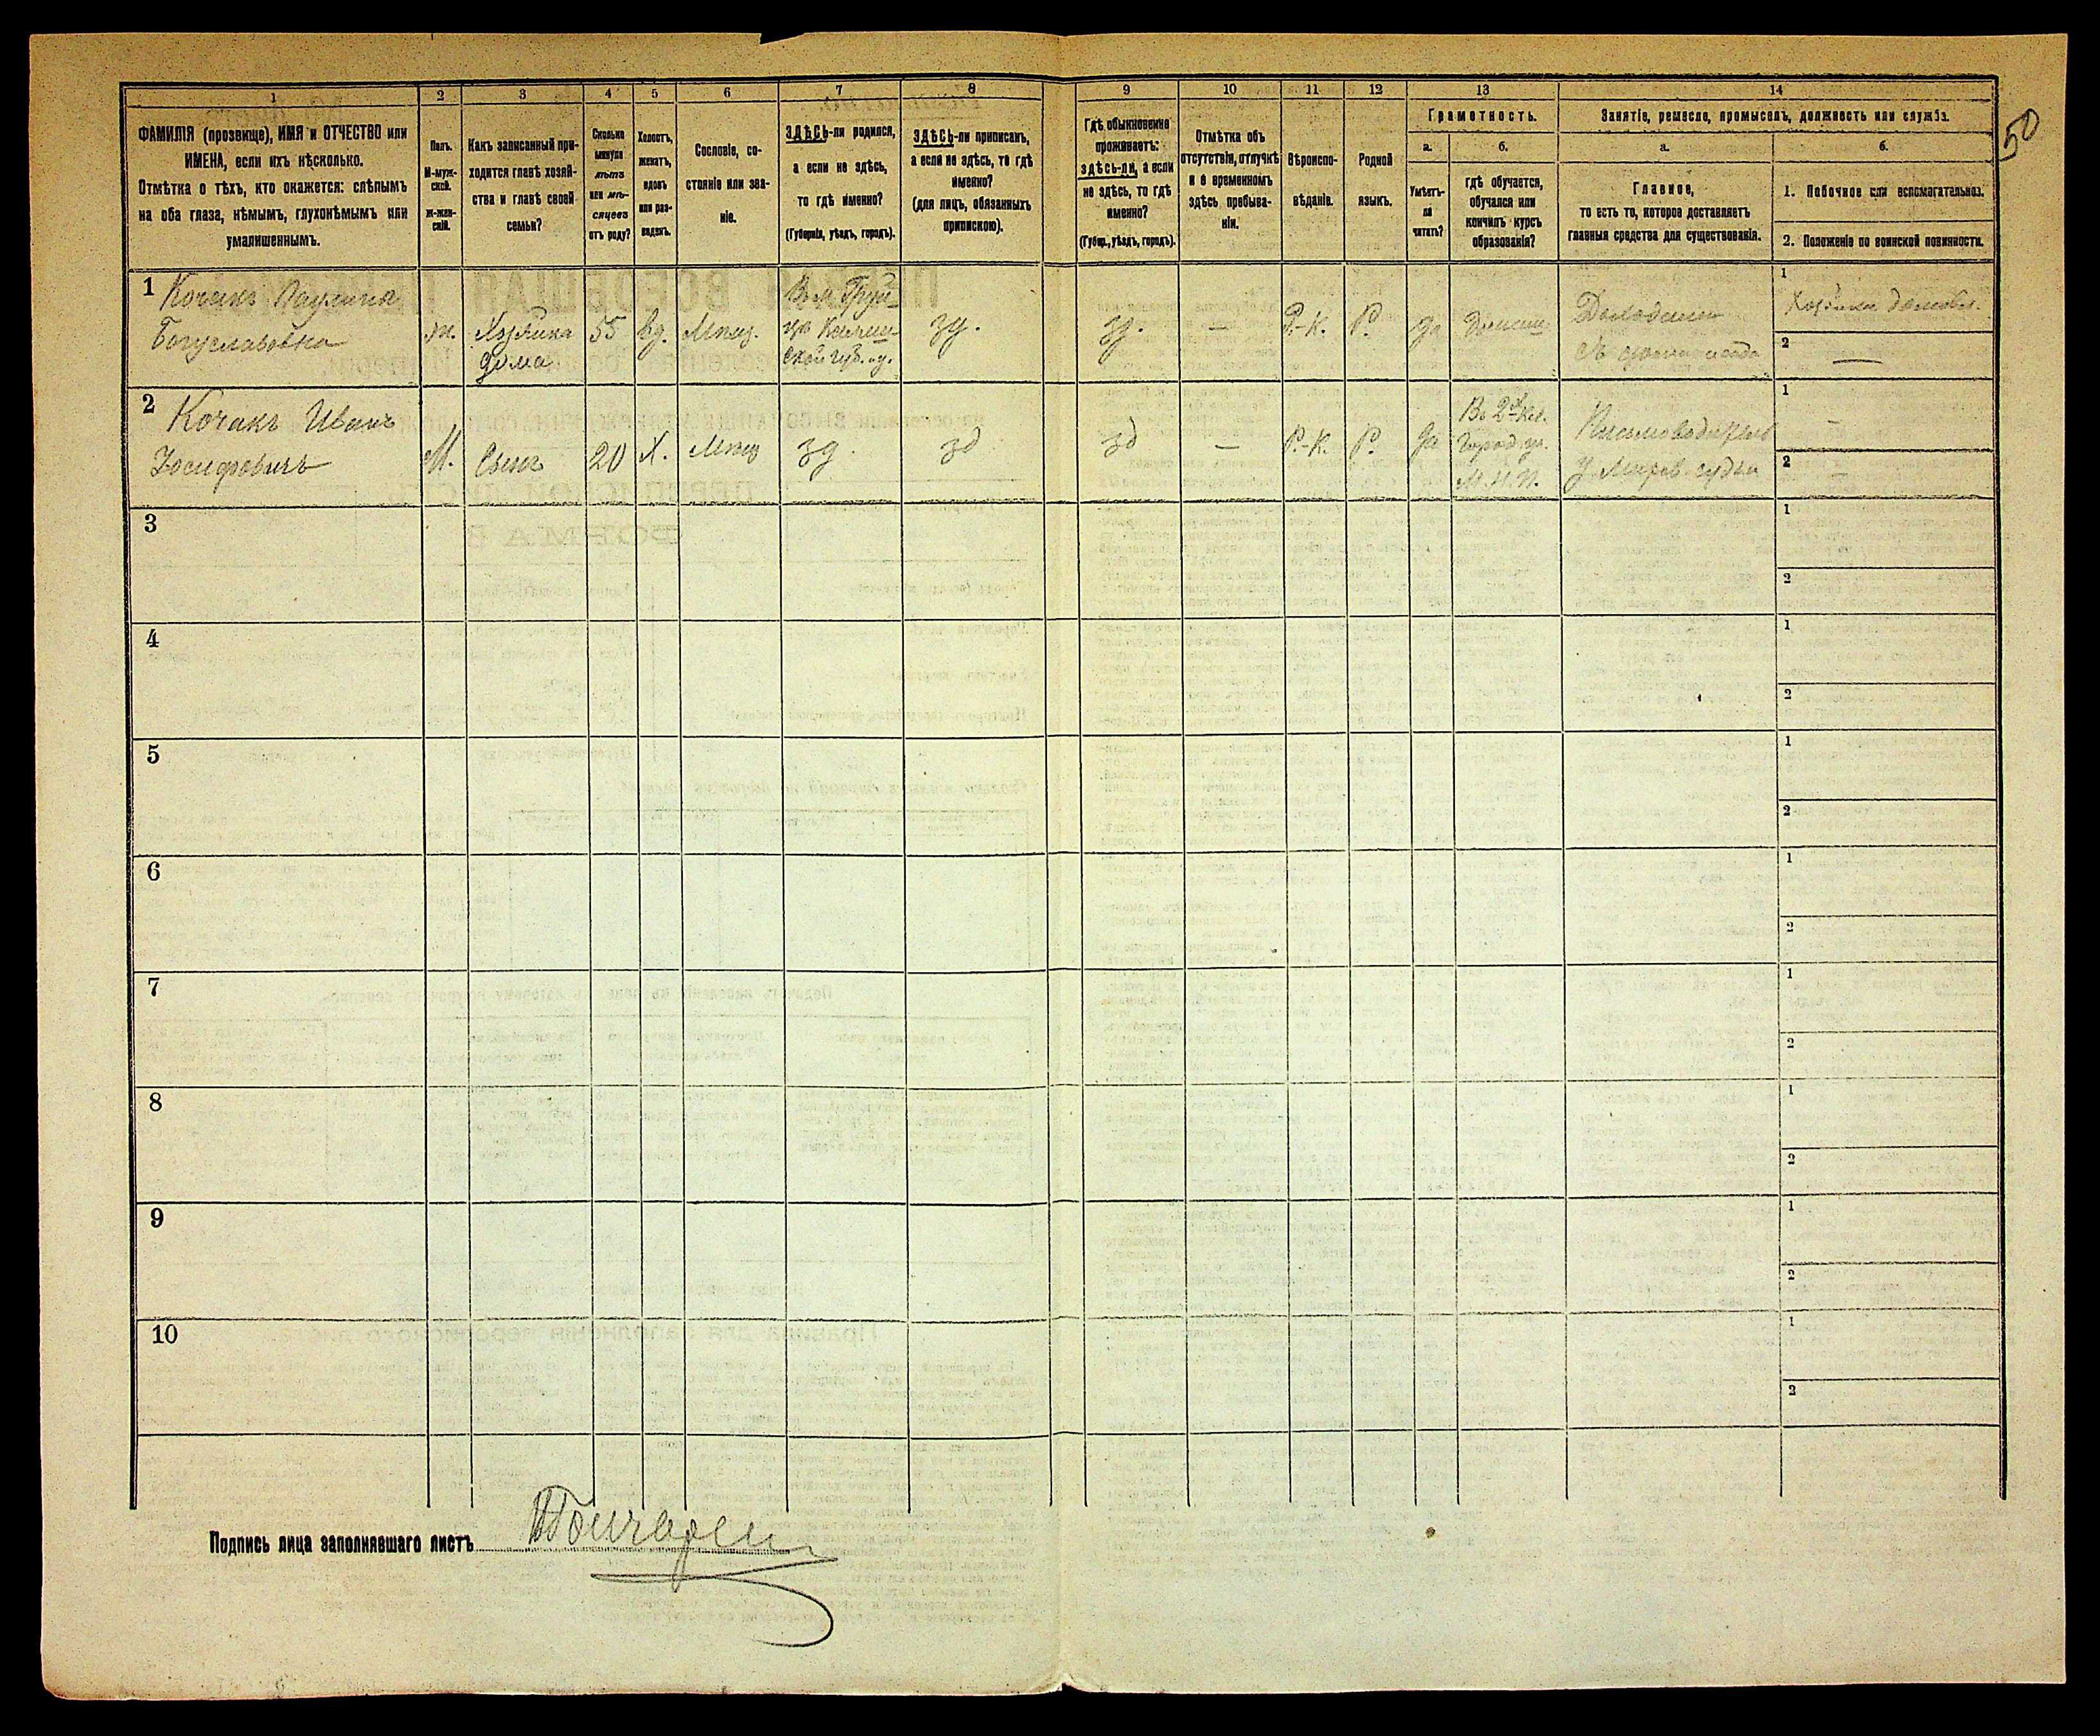 50
1 2 3 4 5 6 7 8 9 10 11 12 13 14
ФАМИЛІЯ (прозвище), ИМЯ и ОТЧЕСТВО или
ИМЕНА, если ихъ нѣсколько.
Отмѣтка о тѣхъ, кто окажется: слѣпымъ
на оба глаза, нѣмымъ, глухонѣмымъ или
умалишеннымъ.
Полъ.
М-муж-
ской.
ж-жен-
скій.
Какъ записанный при-
ходится главѣ хозяй-
ства и главѣ своей
семьи?
Сколько
минуло
лѣтъ
или мѣ-
сяцевъ
отъ роду?
Холостъ,
женатъ,
вдовъ
или раз-
веденъ.
Сословіе, со-
стояніе или зва-
ніе.
ЗДѢСЬ-ли родился,
а если не здѣсь,
то гдѣ именно?
(Губернія, уѣздъ, городъ).
ЗДѢСЬ-ли приписанъ,
а если не здѣсь, то гдѣ
именно?
(для лицъ, обязанныхъ
припискою).
Гдѣ обыкновенно
проживаетъ:
ЗДѢСЬ-ли, а если
не здѣсь, то гдѣ
именно?
(Губер., уѣздъ, городъ).
Отмѣтка объ
отсутствіи, отлучкѣ
и о временномъ
здѣсь пребыва-
ніи.
Вѣроиспо-
вѣданіе.
Родной
языкъ.
Грамотность.
а.
Умѣетъ-
ли
читать?
б.
гдѣ обучается,
обучался или
кончилъ курсъ
образованія?
Занятіе, ремесло, промыселъ, должность или служба.
а.
Главное,
то есть то, которое доставляетъ
главныя средства для существованія.
б.
1. Побочное или вспомагательное.
2. Положеніе по воинской повинности.
1
Кочакъ Паулина
Богуславовна
ж.
Хозяйка
дома
55
вд.
Мѣщ.
зд.
зд.
—
Р.-К.
Р.
да
1
2 —
2
Кочакъ Иванъ
Іосифовичъ
М.
Сынъ
20
Х.
Мѣщ
зд.
зд
зд
—
Р.-К.
Р.
да
Въ 2х кл.
Город. уч.
М. Н. П.
Письмоводитель
У Миров. судьи
1 —
2 —
3
1
2
4
1
2
5
1
2
6
1
2
7
1
2
8
1
2
9
1
2
10
1
2
Подпись лица заполнявшаго листъ